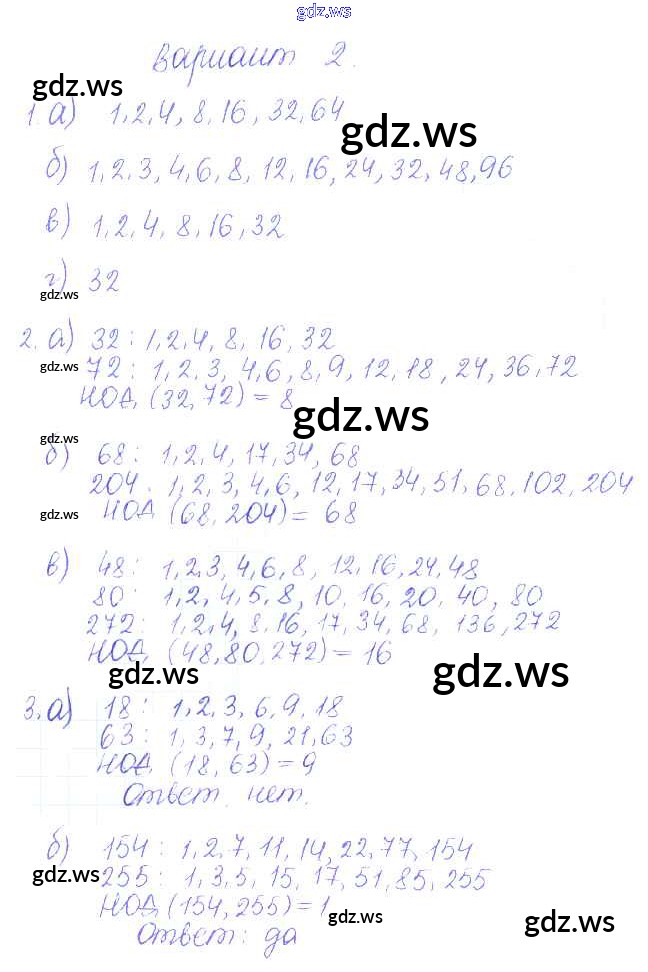 gdz.ws
Вариант 2.
gdz.ws
1. а) 1, 2, 4, 8, 16, 32, 64
gdz.ws
б) 1, 2, 3, 4, 6, 8, 12, 16, 24, 32, 48, 96
в) 1, 2, 4, 8, 16, 32
г) 32
gdz.ws
2. а) 32: 1, 2, 4, 8, 16, 32
gdz.ws
72: 1, 2, 3, 4, 6, 8, 9, 12, 18, 24, 36, 72
НОД (32, 72) = 8
gdz.ws
gdz.ws
б) 68: 1, 2, 4, 17, 34, 68
204: 1, 2, 3, 4, 6, 12, 17, 34, 51, 68, 102, 204
gdz.ws
НОД (68, 204) = 68
в) 48: 1, 2, 3, 4, 6, 8, 12, 16, 24, 48
80: 1, 2, 4, 5, 8, 10, 16, 20, 40, 80
272: 1, 2, 4, 8, 16, 17, 34, 68, 136, 272
НОД (48, 80, 272) = 16
gdz.ws
gdz.ws
3. а) 18: 1, 2, 3, 6, 9, 18
63: 1, 3, 7, 9, 21, 63
НОД (18, 63) = 9
Ответ: нет.
б) 154: 1, 2, 7, 11, 14, 22, 77, 154
gdz.ws
255: 1, 3, 5, 15, 17, 51, 85, 255
НОД (154, 255) = 1
gdz.ws
gdz.ws
Ответ: да